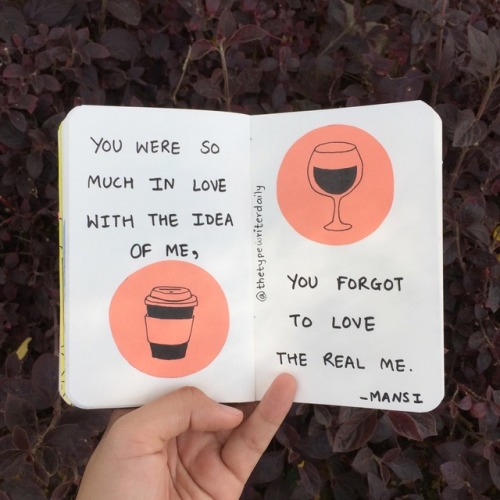 YOU WERE SO
MUCH IN LOVE
WITH THE IDEA
OF ME,
@thetypewriterdaily
YOU FORGOT
TO LOVE
THE REAL ME.
-MANSI